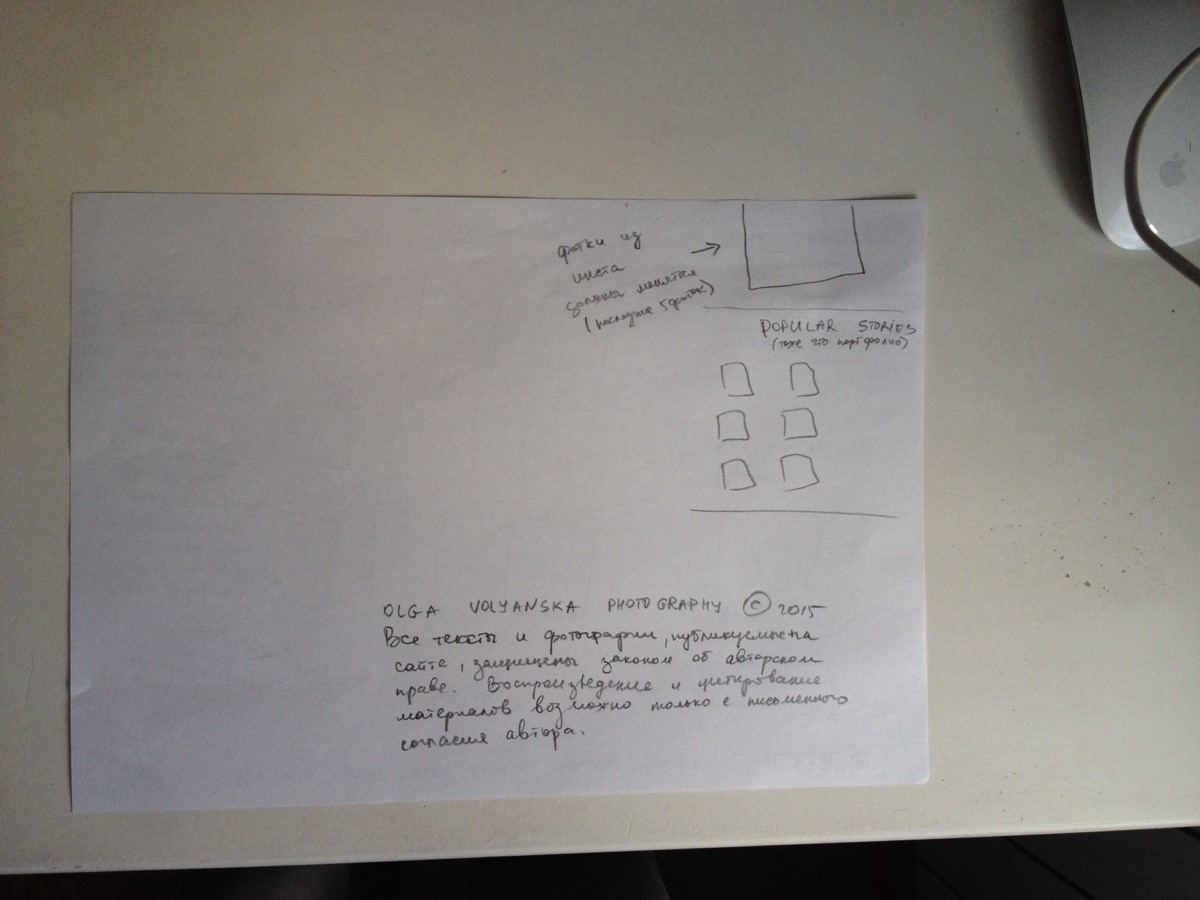 фотки из
инста
должны меняться
(последние 5 фоток)
POPULAR STORIES
(тоже это портфолио)
OLGA VOLYANSKA PHOTOGRAPHY © 2015
Все тексты и фотографии, публикуемые на
сайте, защищены законом об авторском
праве. Воспроизведение и цитирование
материалов возможно только с письменного
согласия автора.